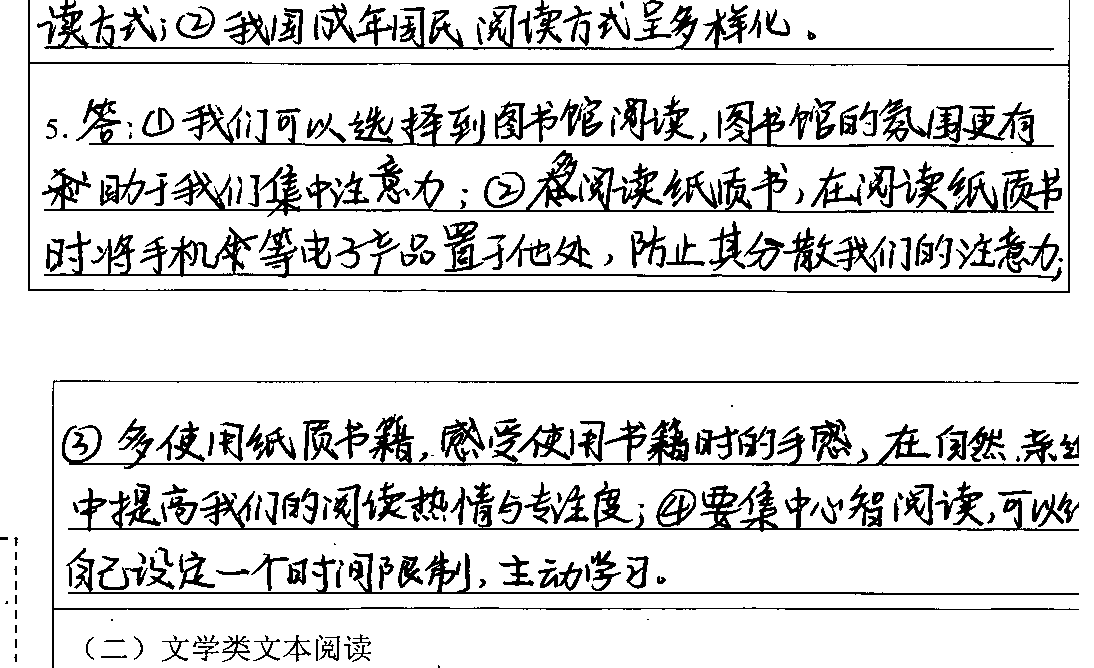 读方式；②我国成年国民阅读方式呈多样化。
5. 答：①我们可以选择到图书馆阅读，图书馆的氛围更有
助于我们集中注意力；②多阅读纸质书，在阅读纸质书
时将手机等电子产品置于他处，防止其分散我们的注意力；
③多使用纸质书籍，感受使用书籍时的手感，在自然、亲
中提高我们的阅读热情与专注度；④要集中心智阅读，可以
自己设定一个时间限制，主动学习。
（二）文学类文本阅读